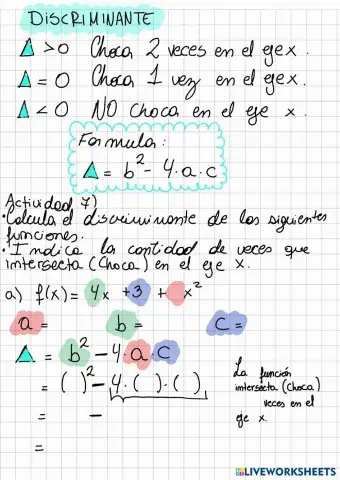 DISCRIMINANTE
Δ > 0 Choca 2 veces en el eje x.
Δ = 0 Choca 1 vez en el eje x.
Δ < 0 NO choca en el eje x.
Formula:
Δ = b² - 4·a·c
Actividad 7)
• Calcula el discriminante de las siguientes
funciones.
• Indica la cantidad de veces que
intersecta (Choca) en el eje x.
a) f(x) = 4x + 3 + x²
a = b = c =
Δ = b² - 4·a·c
= ( )² - 4·( )·( )
= -
=
La función
intersecta (choca)
veces en el
eje x.
LIVEWORKSHEETS